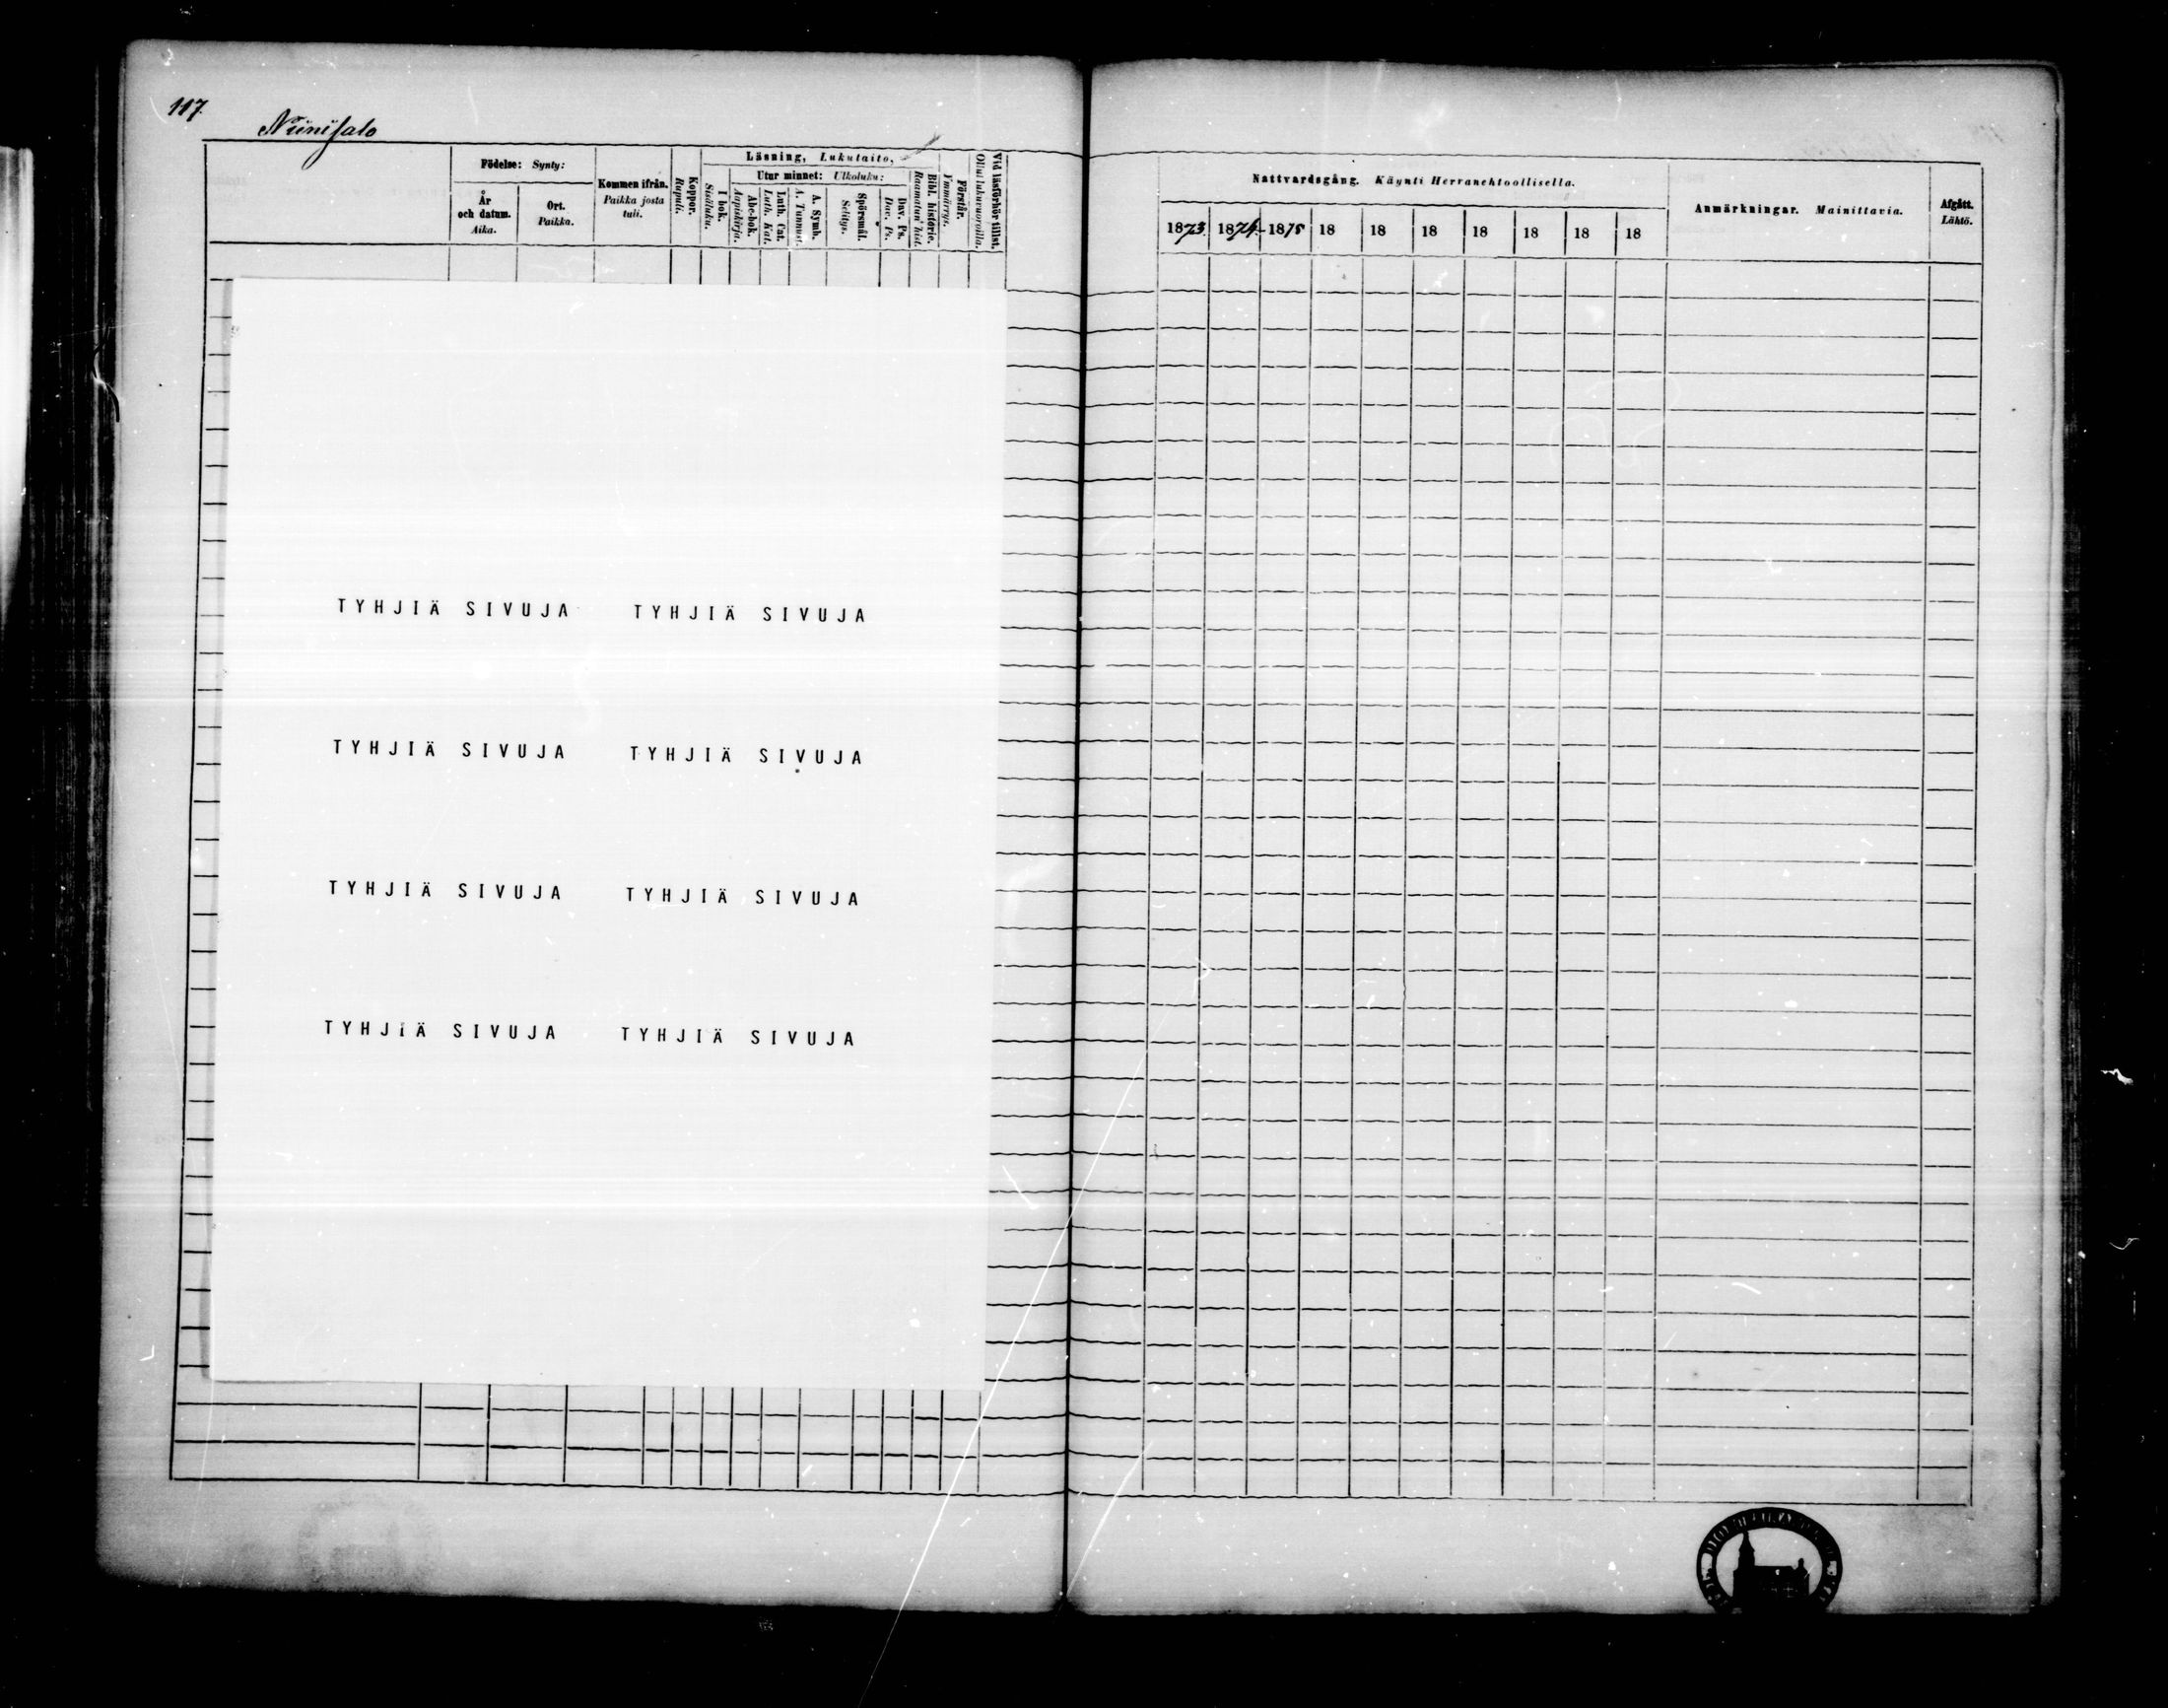 117.
Niinisalo
Födelse: Synty:
År och datum. Aika.
Ort. Paikka.
Kommen ifrån. Paikka josta tuli.
Koppor. Rupuli.
Läsning, Lukutaito,
I bok. Sisäluku.
Utur minnet: Ulkoluku:
Abc-bok. Aapiskirja.
Luth. Cat. Luth. Kat.
A. Symb. A. Tunnust.
Spörsmål. Selitys.
Dav. Ps. Dav. Ps.
Bibl. historie. Raamatun hist.
Förstår. Ymmärrys.
Vid läsförhör tillst. Ollut lukuvuoroilla.
Nattvardsgång. Käynti Herranehtoollisella.
1873 1874 1875 18 18 18 18 18 18 18
Anmärkningar. Mainittavia.
Afgått. Lähtö.
TYHJIÄ SIVUJA TYHJIÄ SIVUJA
TYHJIÄ SIVUJA TYHJIÄ SIVUJA
TYHJIÄ SIVUJA TYHJIÄ SIVUJA
TYHJIÄ SIVUJA TYHJIÄ SIVUJA